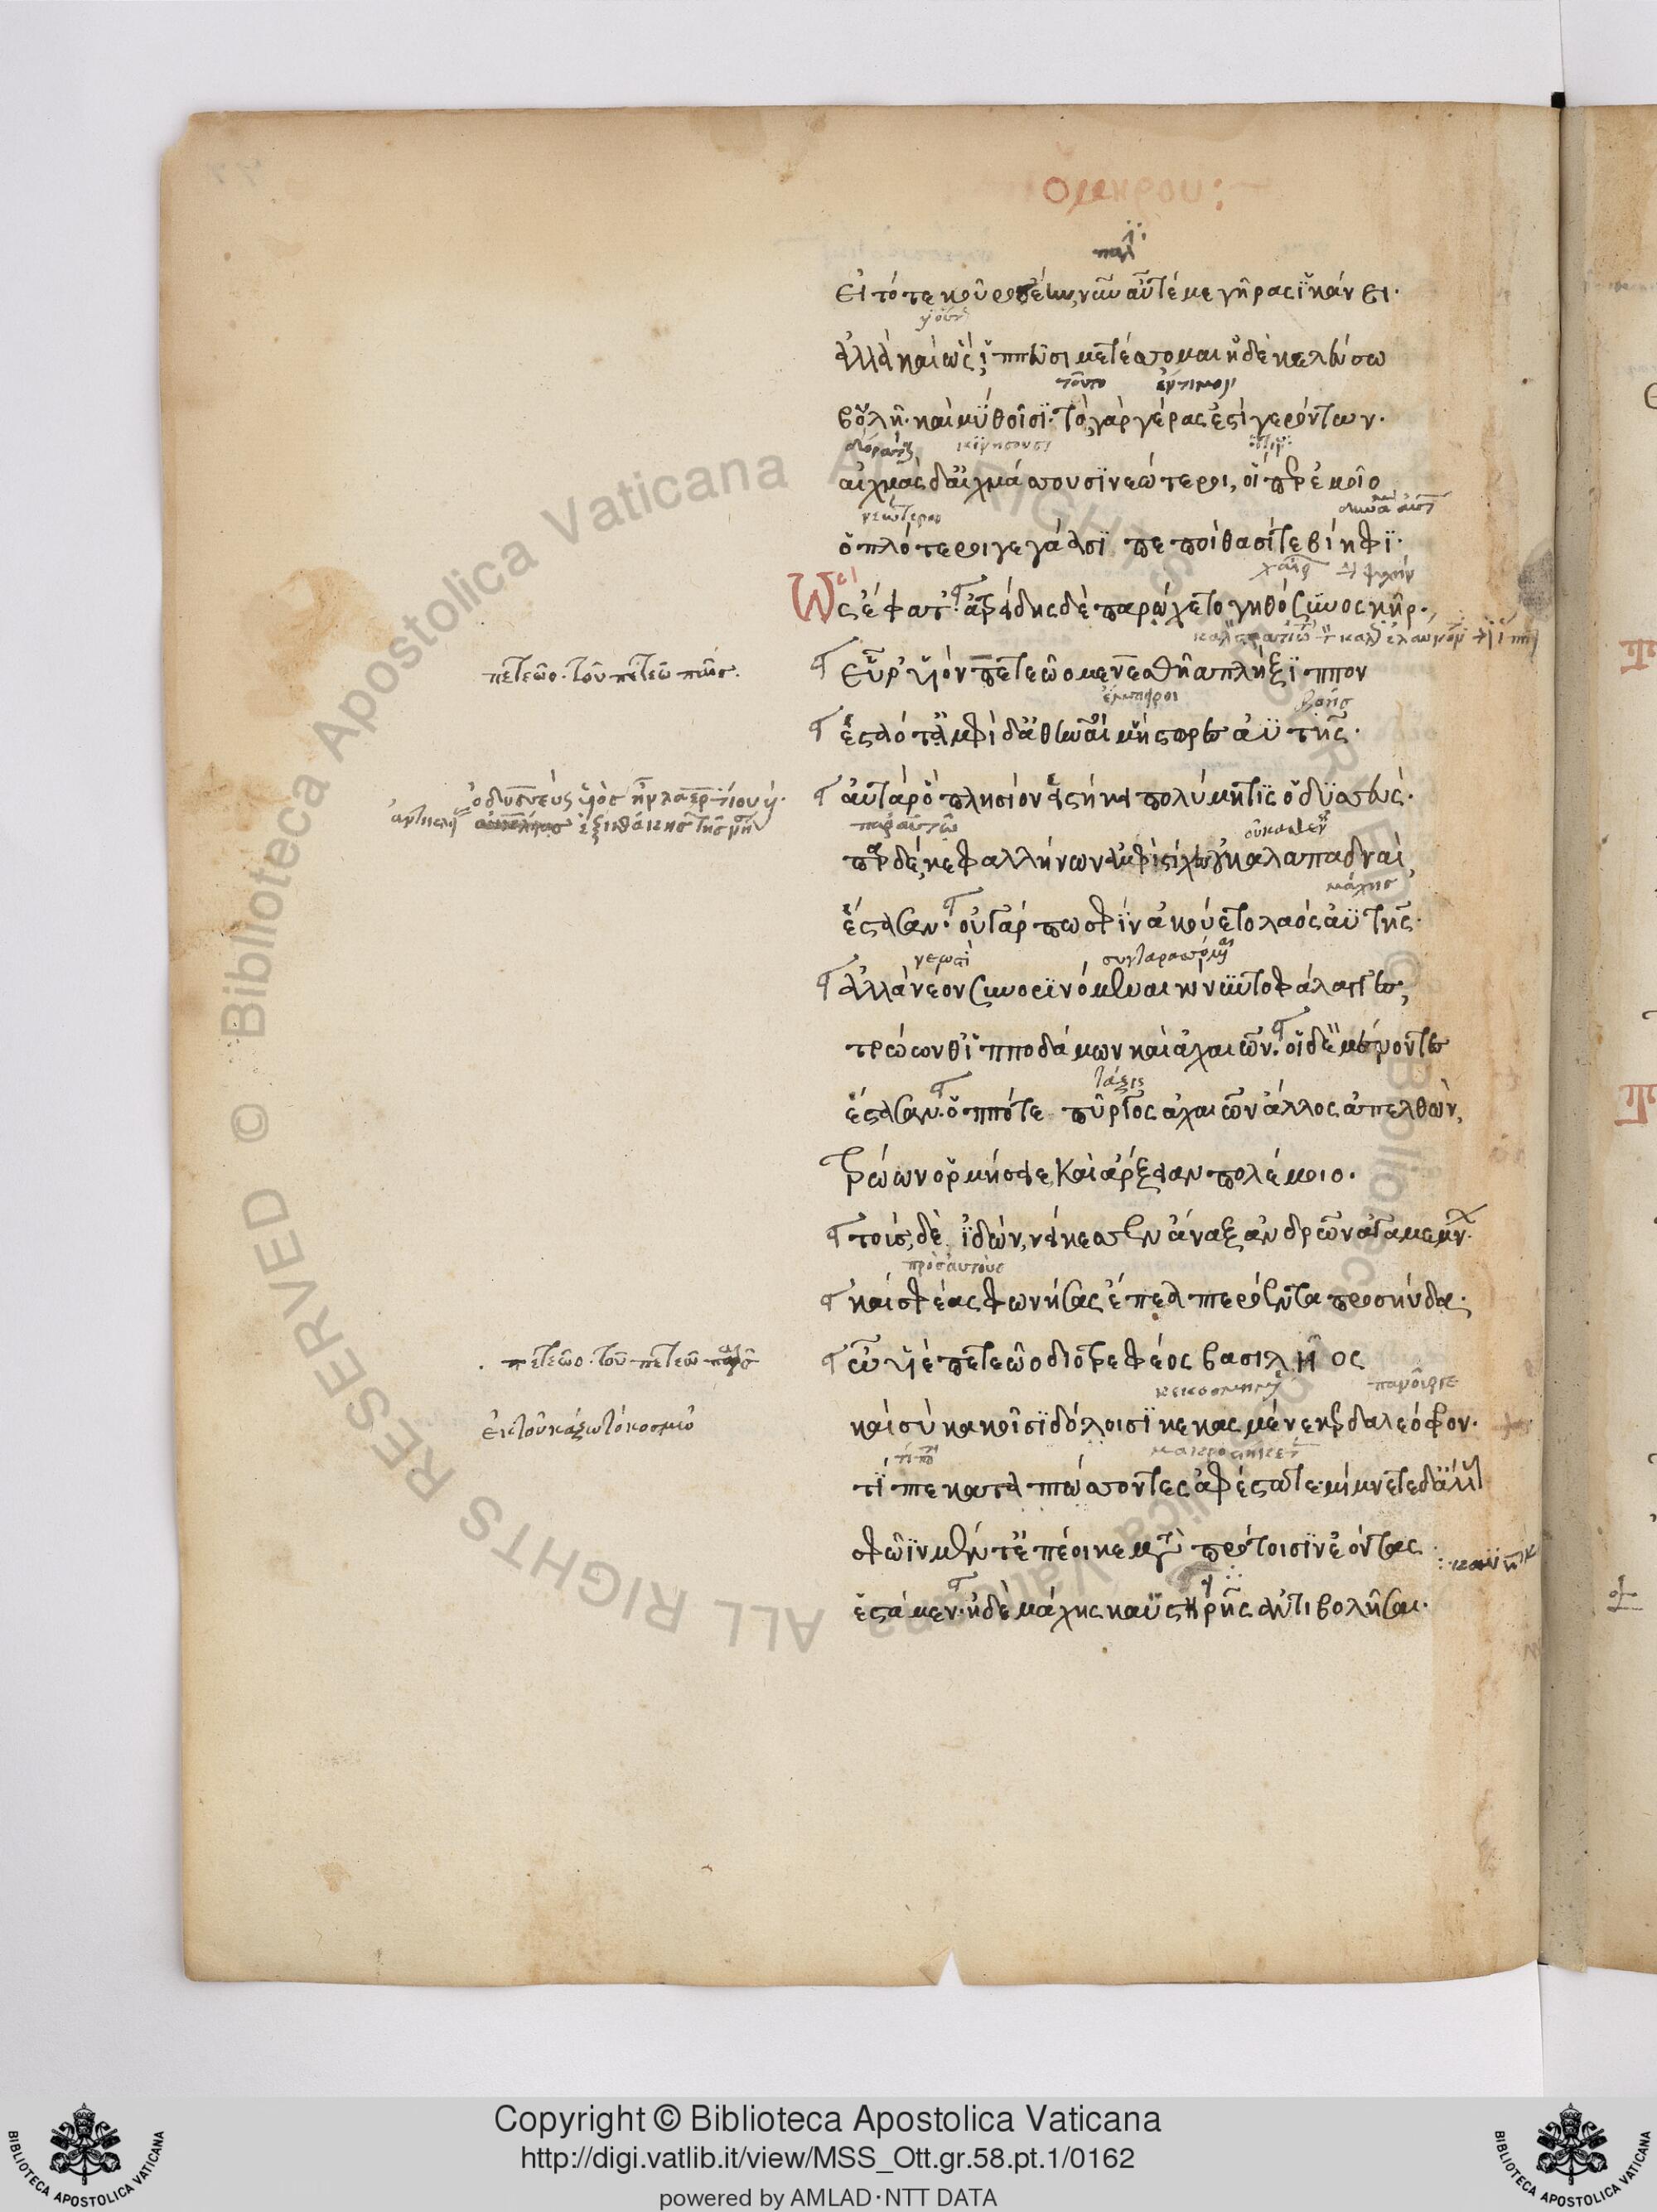 Ὁμήρου:
εἰ τότε κοῦρος ἔην, νῦν αὖτέ με γῆρας ἱκάνει·
ἀλλὰ καὶ ὣς ἱππεῦσι μετέσσομαι ἠδὲ κελεύσω
βουλῇ· καὶ μύθοισι· τὸ γὰρ γέρας ἐστὶ γερόντων·
δόρατα κινήσουσι
αἰχμὰς δ' αἰχμάσσουσι νεώτεροι, οἵπερ ἐμοῖο
νεώτεροι
ὁπλότεροι γεγάασι πεποίθασίτε βίηφι·
Ὣς ἔφατ'. ἀτρείδης δὲ παρῴχετο γηθόσυνος κῆρ·
πετεῶο· τοῦ πετεῶ
εὗρ' υἱὸν πετεῶο μενεσθῆα πλήξιππον
ἔμπειροι βοῆς
ἑσταότ' ἀμφὶ δ' ἀθηναῖοι μήστωρες ἀϋτῆς·
αὐτὰρ ὃ πλησίον ἑστήκει πολύμητις ὀδυσσεύς·
παρ' αὐτῷ
πὰρ δὲ, κεφαλλήνων ἀμφὶ στίχες οὐκ ἀλαπαδναὶ
μάχης
ἕστασαν· οὐ γάρ πώ σφιν ἀκούετο λαὸς ἀϋτῆς·
νεωστὶ
ἀλλὰ νέον συνορινόμεναι κίνυντο φάλαγγες,
τρώων θ' ἱπποδάμων καὶ ἀχαιῶν. οἱ δὲ μένοντες
τάξις
ἕστασαν· ὁππότε πύργος ἀχαιῶν ἄλλος ἀπελθὼν,
Τρώων ὁρμήσειε, καὶ ἄρξειαν πολέμοιο·
τοὺς, δὲ ἰδὼν, νείκεσσεν ἄναξ ἀνδρῶν ἀγαμέμνων·
πρὸς αὐτοὺς
καί σφέας φωνήσας ἔπεα πτερόεντα προσηύδα·
πετεῶο· τοῦ πετεῶ
ὦ υἱὲ πετεῶο διοτρεφέος βασιλῆος
ἐκ τοῦ κάζω τὸ κοσμῶ
καὶ σὺ κακοῖσι δόλοισι κεκασμένε κερδαλεόφρον·
τίπτε καταπτώσσοντες ἀφέστατε· μίμνετε δ' ἄλλους
σφῶϊν μέν τ' ἐπέοικε μετὰ πρώτοισιν ἐόντας
ἑστάμεν· ἠδὲ μάχης καυστειρῆς ἀντιβολῆσαι·
© Biblioteca Apostolica Vaticana ALL RIGHTS RESERVED
Copyright © Biblioteca Apostolica Vaticana
http://digi.vatlib.it/view/MSS_Ott.gr.58.pt.1/0162
powered by AMLAD·NTT DATA
BIBLIOTECA APOSTOLICA VATICANA
BIBLIOTECA APOSTOLICA VATICANA